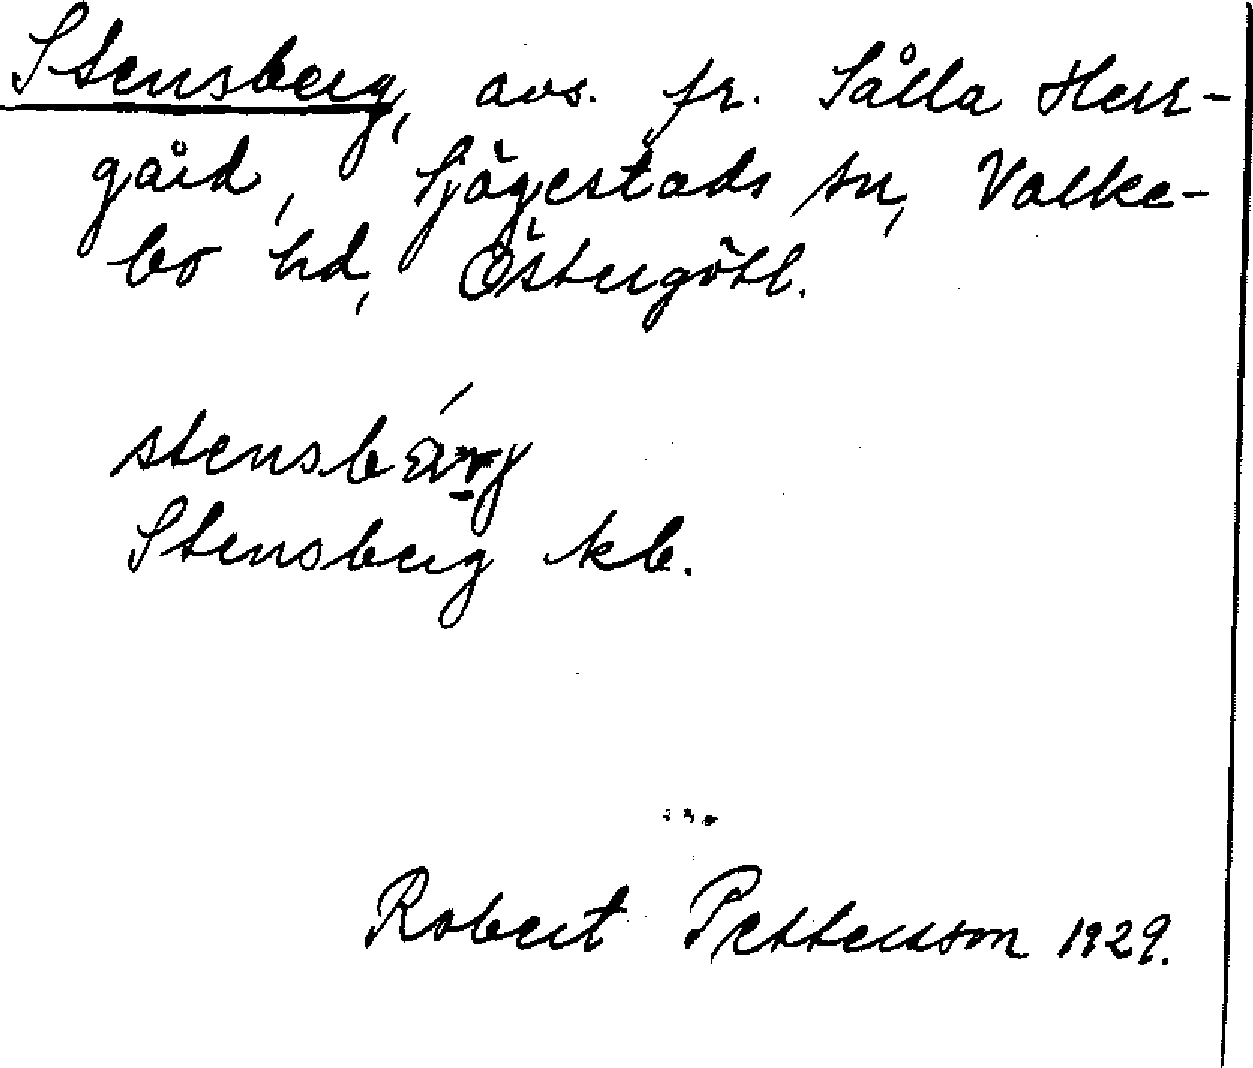 Stensberg, avs. fr. Sålla Herr-
gård, Sjögestads sn, Valke-
bo hd, Östergötl.
stensbærg
Stensberg kb.
Robert Petterson 1929.